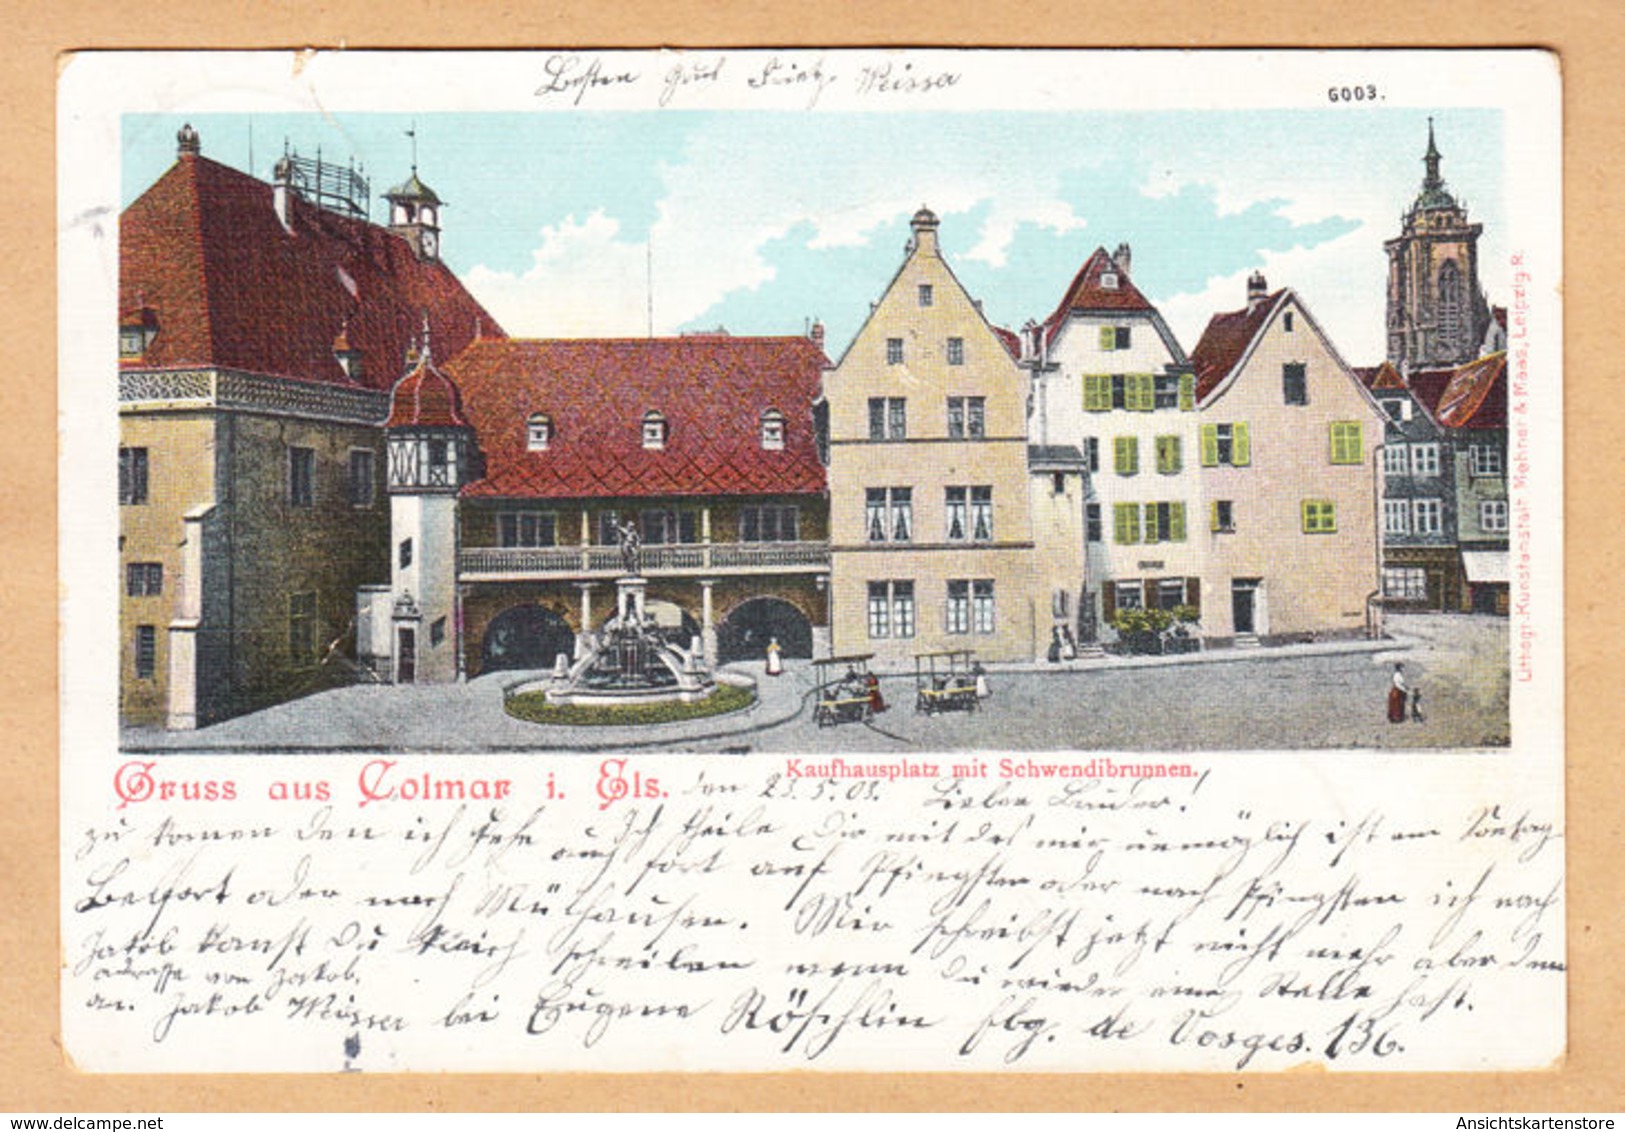 Besten Gruß Fritz Weisser
6003.
Lithogr. Kunstanstalt Mehner & Maas, Leipzig R.
Gruss aus Colmar i. Els.
Kaufhausplatz mit Schwendibrunnen.
den 23.5.03. Lieber Bruder!
Ich theile Dir mit daß mir unmöglich ist am Sontag
zu komen den ich gehe auch fort auf Pfingsten oder nach Pfingsten ich nach
Belfort oder nach Mülhausen. Mir schreibst jetzt nicht mehr aber dem
Jakob kanst Du schreiben wenn Du wieder eine Stelle hast.
adresse von Jakob.
an. Jakob Weisser bei Eugene Röschlin fbg. de Vosges. 136.
www.delcampe.net
Ansichtskartenstore